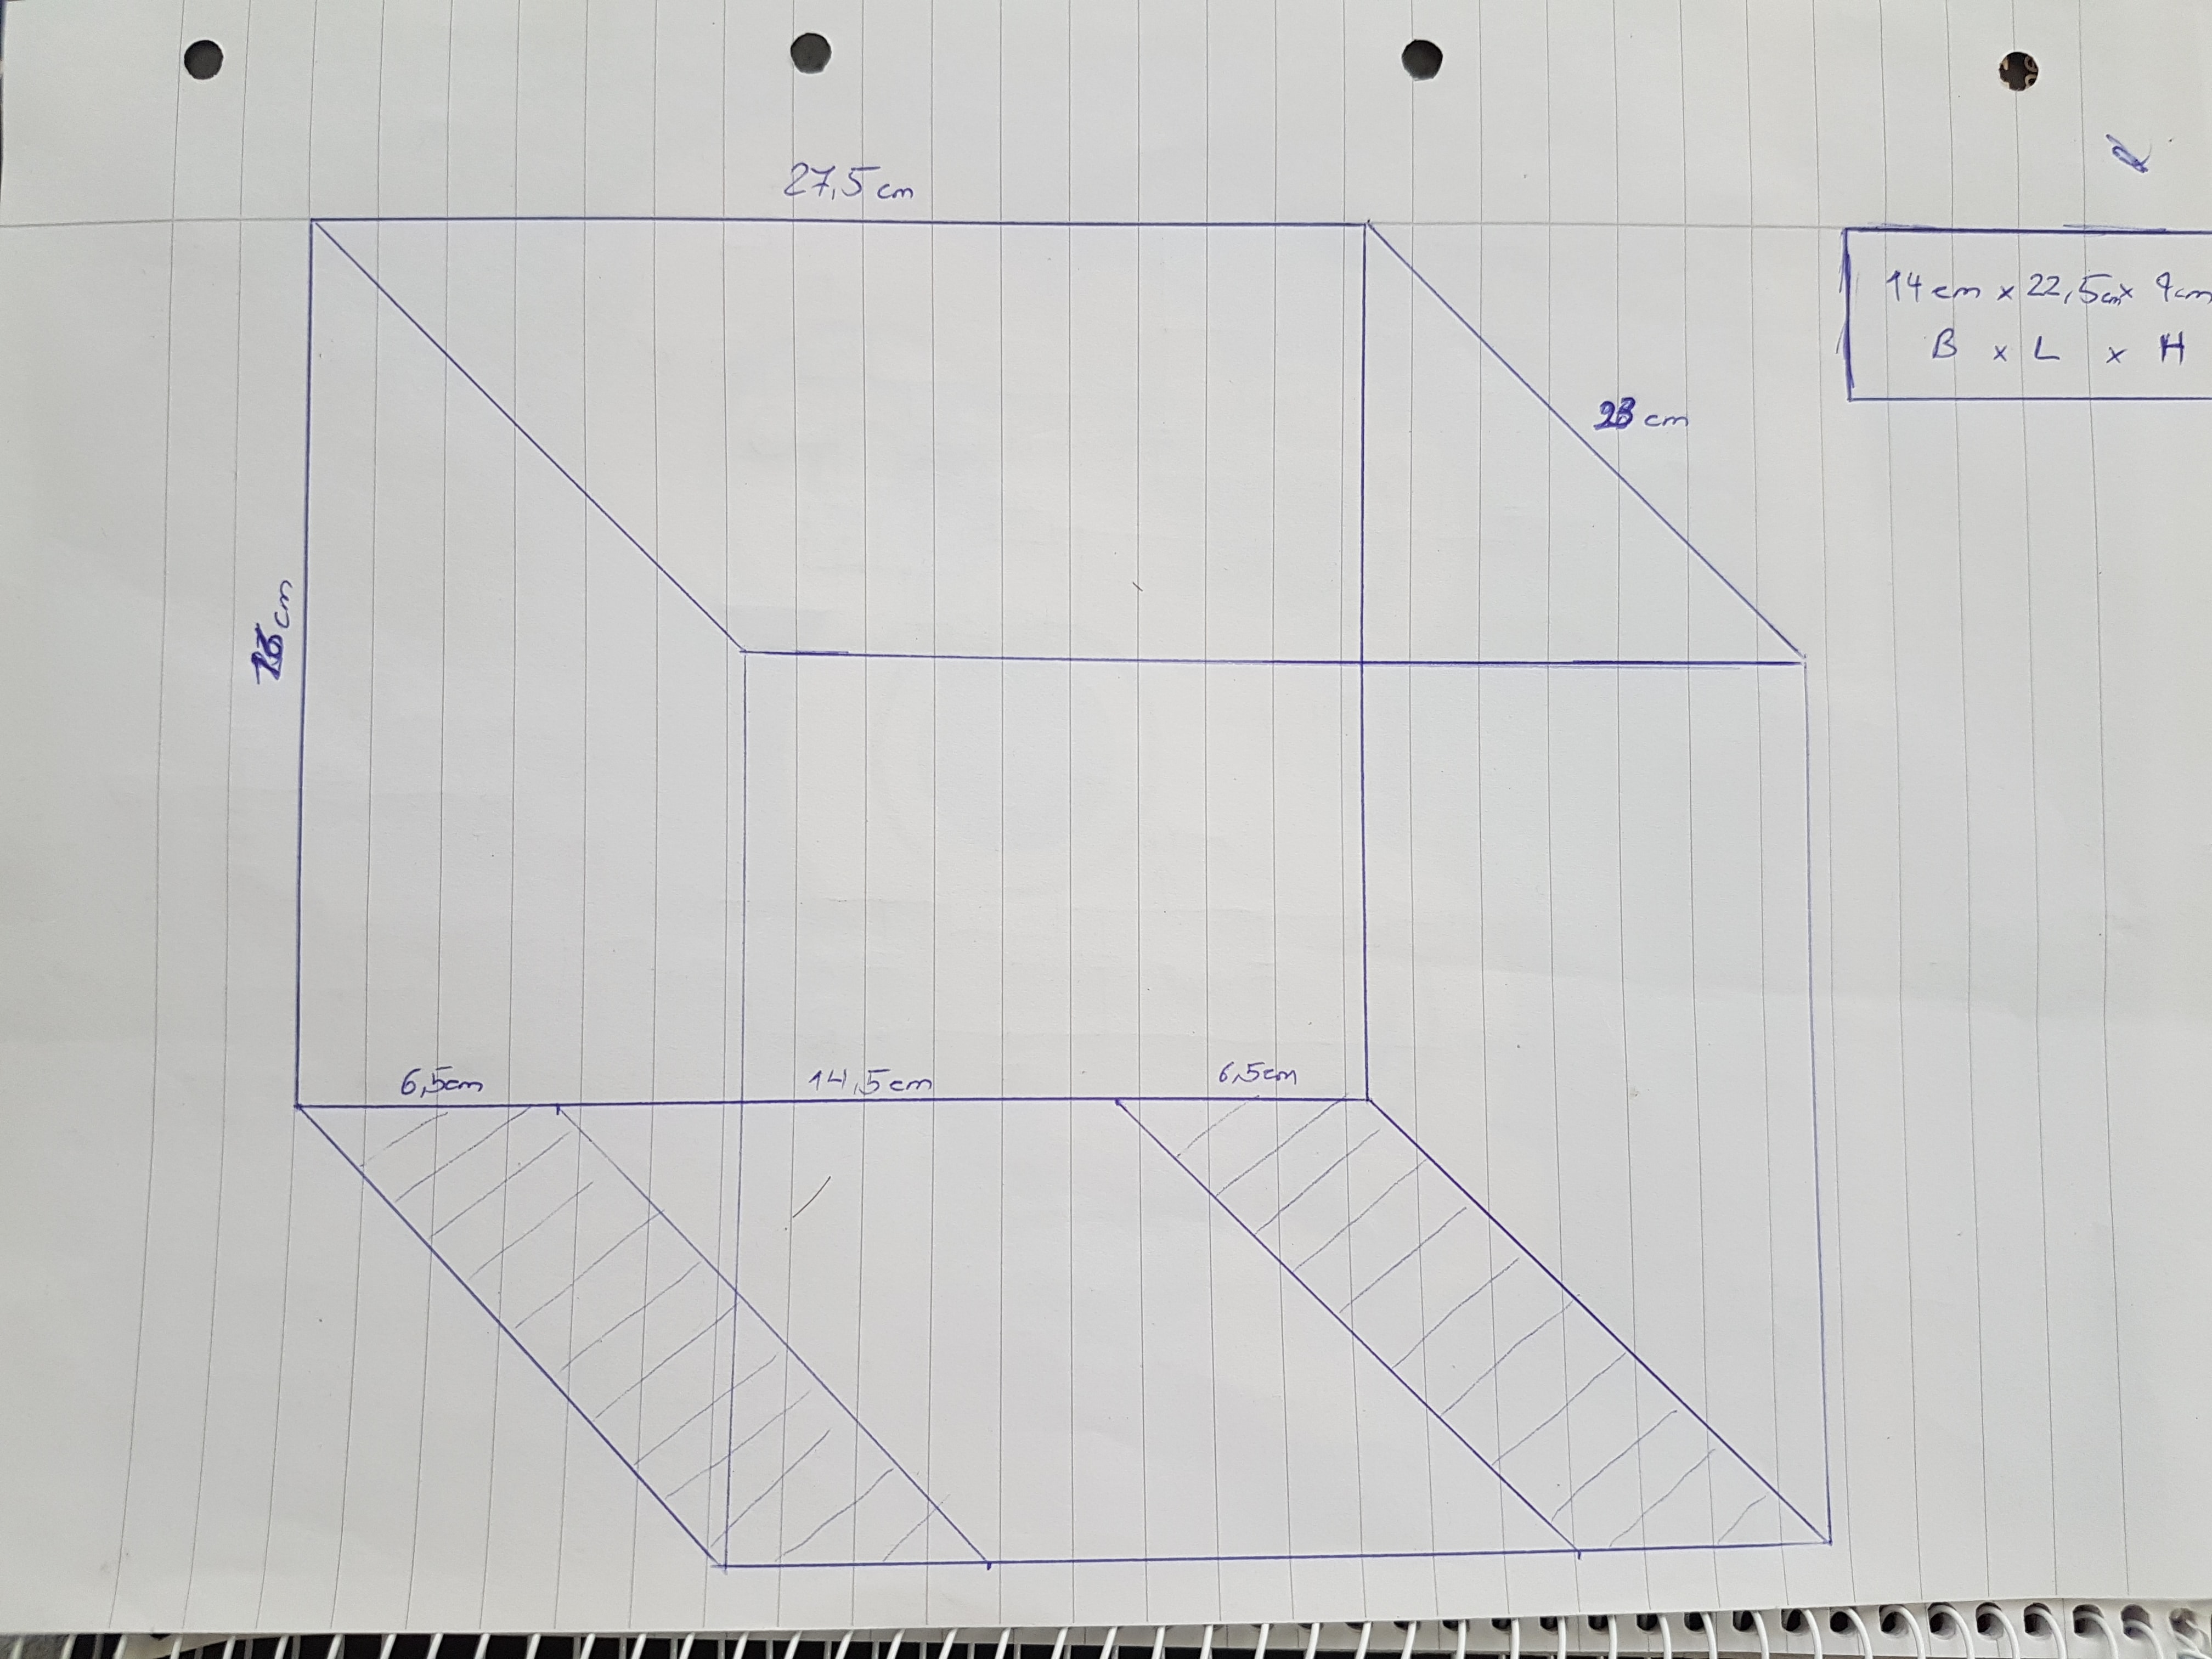 27,5 cm
14 cm x 22,5cm x 9cm
B x L x H
23 cm
cm
6,5cm
14,5cm
6,5cm